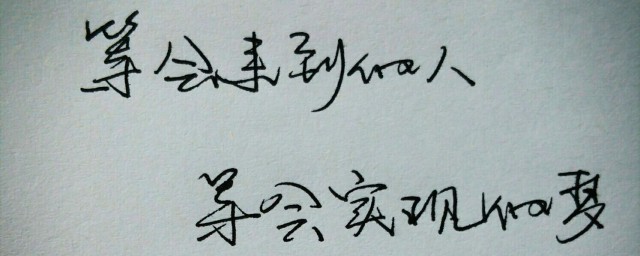 等会来到的人
等会实现的梦